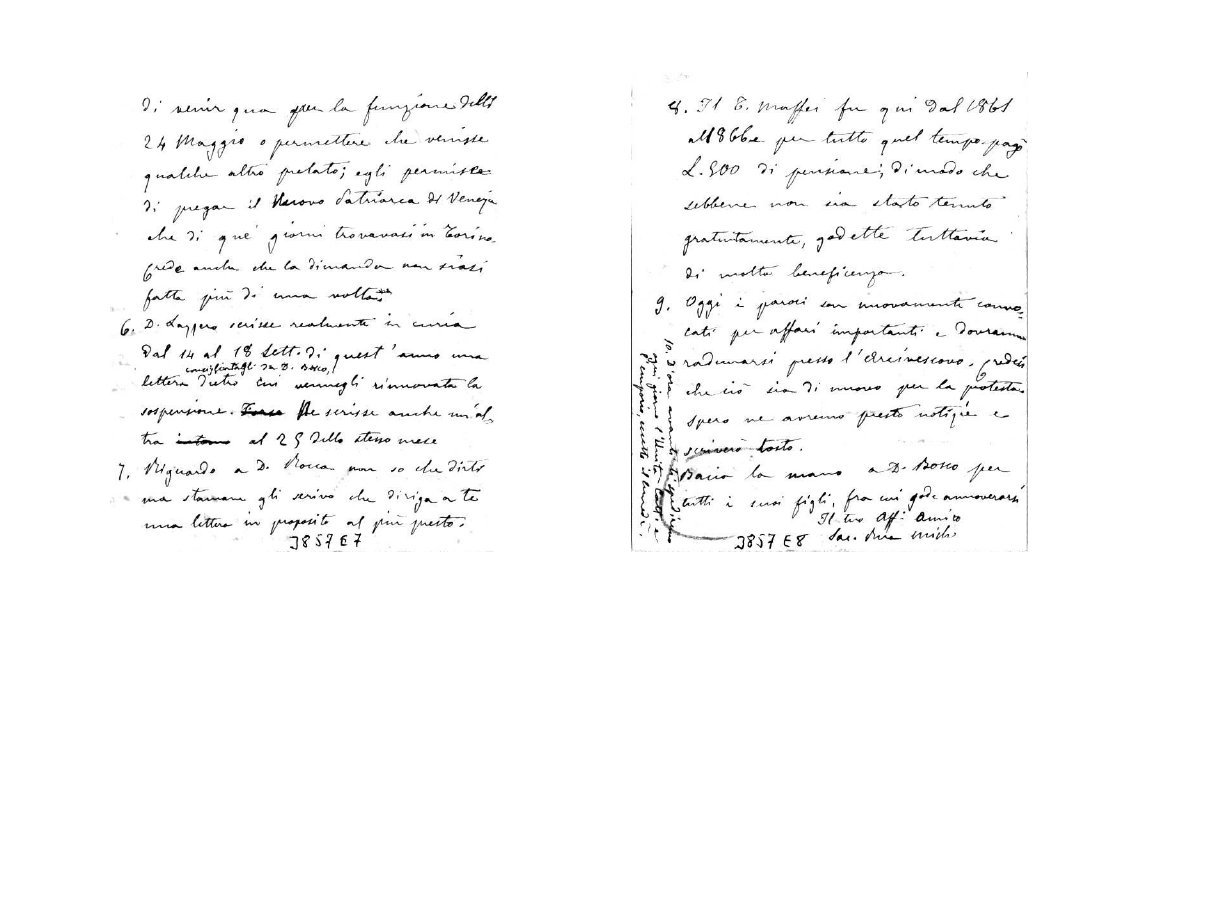 di venir qua per la funzione delli
24 Maggio o permettere che venisse
qualche altro prelato; egli permise
di pregar il Nuovo Patriarca di Venezia
che di que' giorni trovavasi in Torino.
Crede anche che la dimanda non siasi
fatta più di una volta
6. D. Lazzero scrisse realmente in curia
dal 14 al 18 Sett. di quest'anno una
consigliatagli da D. Bosco,
lettera dietro cui vennegli rinnovata la
sospensione. Forse Ne scrisse anche un'al
tra intorno al 25 dello stesso mese
7. Riguardo a D. Rocca non so che dirti
ma stamane gli scrivo che diriga a te
una lettera in proposito al più presto.
J857E7
8. Il T. Maffei fu qui dal 1861
al 1866 e per tutto quel tempo pagò
L. 500 di pensione; di modo che
sebbene non sia stato tenuto
gratuitamente, godette tuttavia
di molta beneficenza.
9. Oggi i paroci son nuovamente convo,
cati per affari importanti e dovranno
radunarsi presso l'Arcivescovo. Credesi
che ciò sia di nuovo per la protesta
spero ne avremo presto notizie e
scriverò tosto.
Bacia la mano a D. Bosco per
tutti i suoi figli, fra cui gode annoverarsi
Il tuo Aff. Amico
Sac. Rua Michele
J857E8
10. D'ora avanti ti spediremo
ogni giorno l'Unità Catt. e
l'Emporio, eccetto il lunedì.